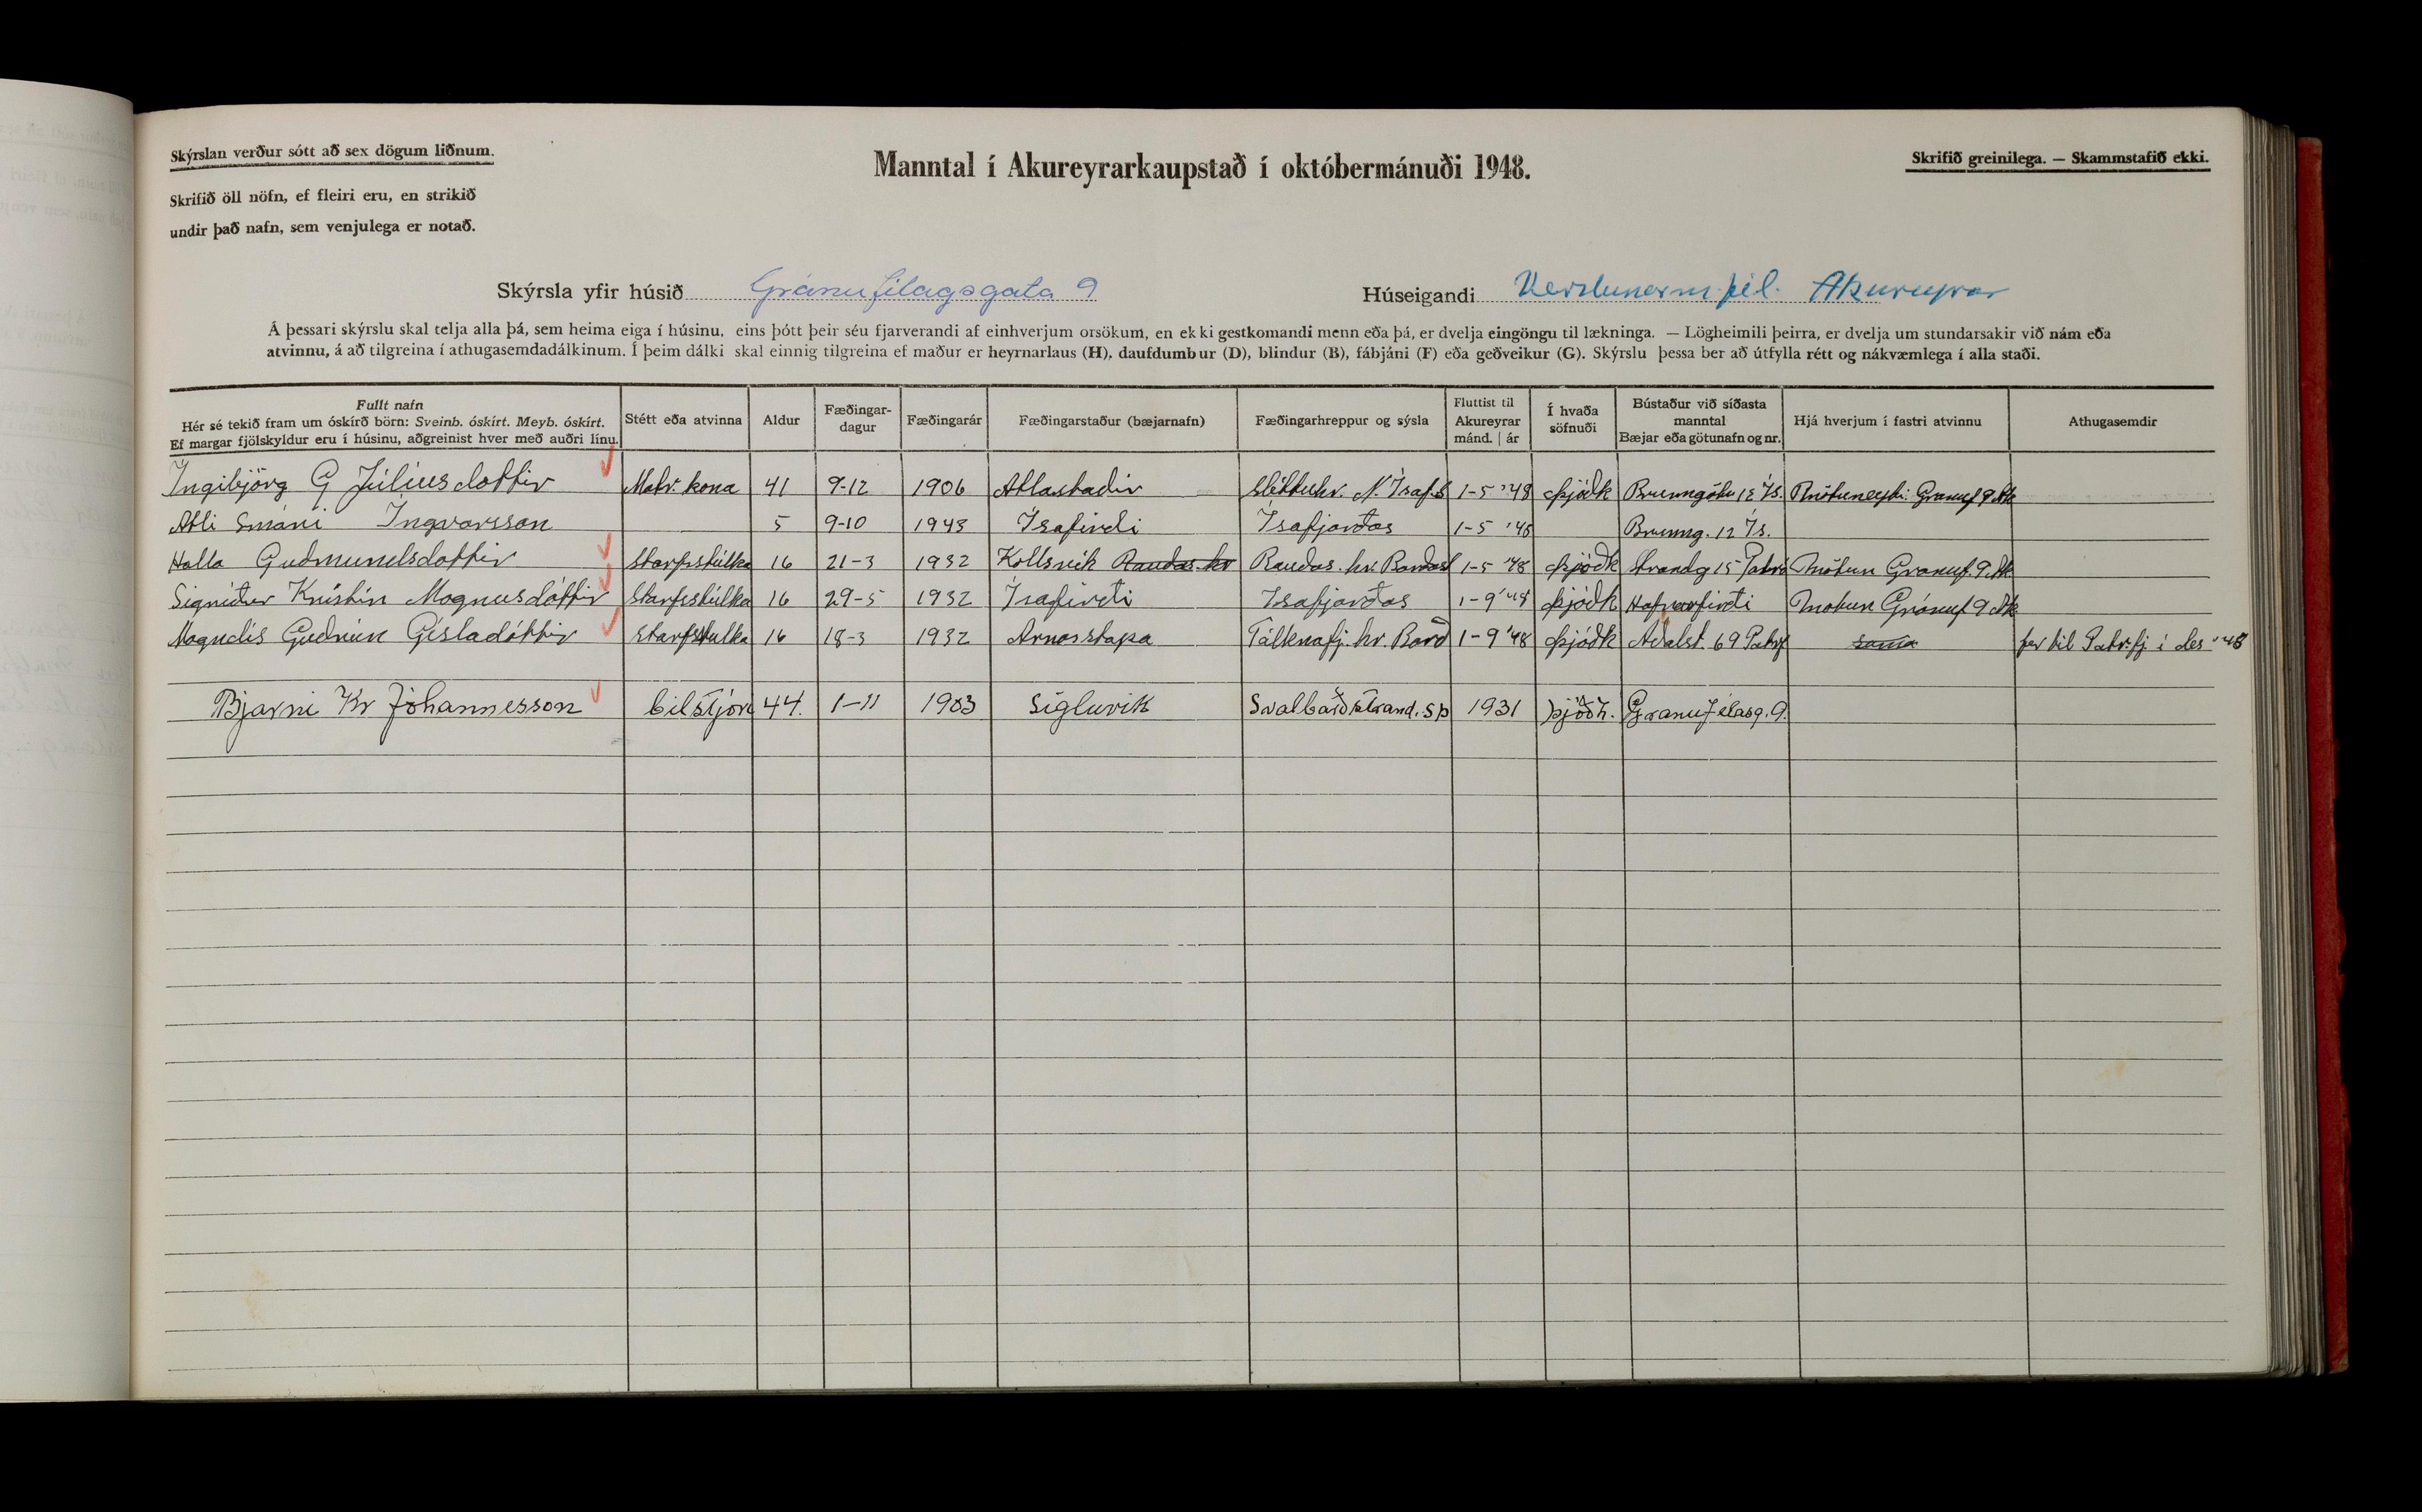 Skýrslan verður sótt að sex dögum liðnum.
Skrifið öll nöfn, ef fleiri eru, en strikið
undir það nafn, sem venjulega er notað.
Manntal í Akureyrarkaupstað í októbermánuði 1948.
Skrifið greinilega. — Skammstafið ekki.
Skýrsla yfir húsið Gránufélagsgata 9
Húseigandi Verslunarm.fél. Akureyrar
Á þessari skýrslu skal telja alla þá, sem heima eiga í húsinu, eins þótt þeir séu fjarverandi af einhverjum orsökum, en ekki gestkomandi menn eða þá, er dvelja eingöngu til lækninga. — Lögheimili þeirra, er dvelja um stundarsakir við nám eða
atvinnu, á að tilgreina í athugasemdadálkinum. Í þeim dálki skal einnig tilgreina ef maður er heyrnarlaus (H), daufdumbur (D), blindur (B), fábjáni (F) eða geðveikur (G). Skýrslu þessa ber að útfylla rétt og nákvæmlega í alla staði.
Fullt nafn
Hér sé tekið fram um óskírð börn: Sveinb. óskírt. Meyb. óskírt.
Ef margar fjölskyldur eru í húsinu, aðgreinist hver með auðri línu.
Stétt eða atvinna
Aldur
Fæðingar-
dagur
Fæðingarár
Fæðingarstaður (bæjarnafn)
Fæðingarhreppur og sýsla
Fluttist til
Akureyrar
mánd. | ár
Í hvaða
söfnuði
Bústaður við síðasta
manntal
Bæjar eða götunafn og nr.
Hjá hverjum í fastri atvinnu
Athugasemdir
Ingibjörg G Júlíusdottir Matr. kona 41 9-12 1906 Atlastadir Sléttuhr. N. Ísafs 1-5 '48 þjódk Brunngötu 12 Ís. Mötuneyti Granuf. 9 Ak
Atli Smári Ingvarsson 5 9-10 1943 Ísafirdi Ísafjarðar 1-5 '48 Brunng. 12 Ís.
Halla Gudmundsdottir Starfsstúlka 16 21-3 1932 Kollsvik Raudas. hr Raudas. hr. Bardast 1-5 '48 þjóðk Strandg 15 Patr Mötun Granuf. 9 Ak
Sigríður Kristín Magnusdóttir Starfsstúlka 16 29-5 1932 Ísafirði Isafjarðar 1-9 '48 þjóðk Hafnarfirði Mötun Gránuf 9 Ak
Magndís Gudrún Gísladóttir Starfsstulka 16 18-3 1932 Arnarstapa Tálknafj. hr. Barð 1-9 '48 þjóðk Aðalst. 69 Patrf sama fer til Patr.fj. í des '48
Bjarni Kr Jóhannesson bílstjóri 44. 1-11 1903 Sigluvik Svalbarðsstrand. S þ 1931 þjóðk. Gránufélasg. 9.